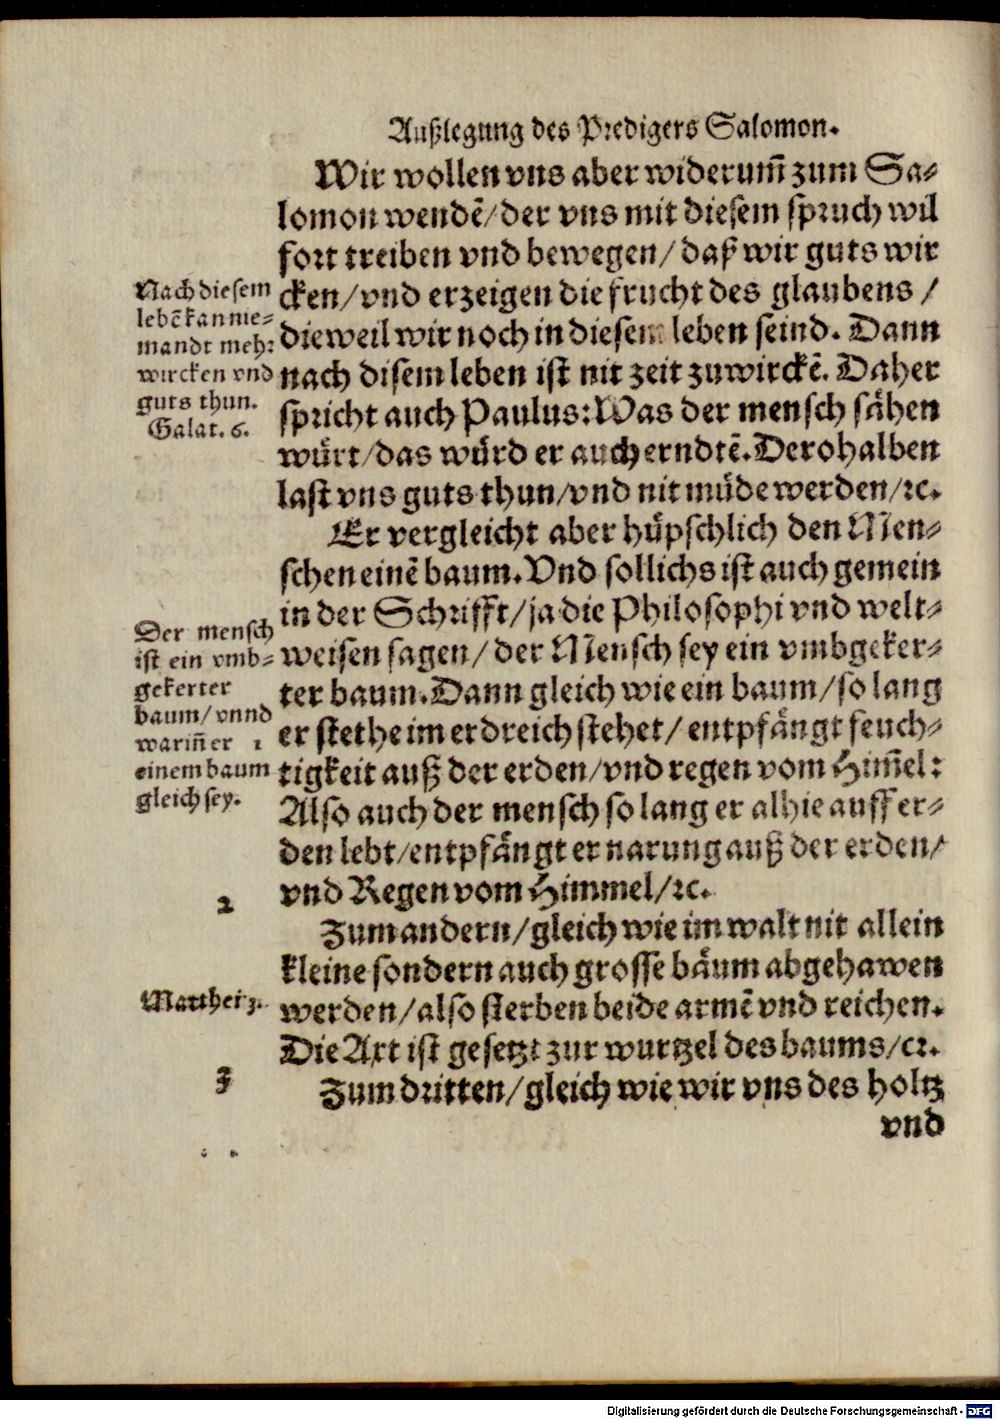 Außlegung des Predigers Salomon.
Wir wollen vns aber widerum̃ zum Sa-
lomon wendẽ/der vns mit diesem spruch wil
fort treiben vnd bewegen/daß wir guts wir
cken/vnd erzeigen die frucht des glaubens/
dieweil wir noch in diesem leben seind. Dann
nach disem leben ist nit zeit zuwirckẽ. Daher
spricht auch Paulus: Was der mensch sähen
würt/das würd er auch erndtẽ. Derohalben
last vns guts thun/vnd nit müde werden/ꝛc.
Nach diesem
lebẽ kan nie-
mandt mehr
wircken vnd
guts thun.
Galat. 6.
Er vergleicht aber hüpschlich den Men-
schen einẽ baum. Vnd sollichs ist auch gemein
in der Schrifft/ja die Philosophi vnd welt-
weisen sagen/der Mensch sey ein vmbgeker-
ter baum. Dann gleich wie ein baum/so lang
er stethe im erdreich stehet/entpfängt feuch-
tigkeit auß der erden/vnd regen vom Him̃el:
Also auch der mensch so lang er alhie auff er-
den lebt/entpfängt er narung auß der erden/
vnd Regen vom Himmel/ꝛc.
Der mensch
ist ein vmb-
gekerter
baum/vnnd
warim̃ er 1
einem baum
gleich sey.
2
Zum andern/gleich wie im walt nit allein
kleine sondern auch grosse bäum abgehawen
werden/also sterben beide armẽ vnd reichen.
Die Axt ist gesetzt zur wurtzel des baums/cꝛ.
Matthei 3.
3
Zum dritten/gleich wie wir vns des holtz
vnd
Digitalisierung gefördert durch die Deutsche Forschungsgemeinschaft - DFG